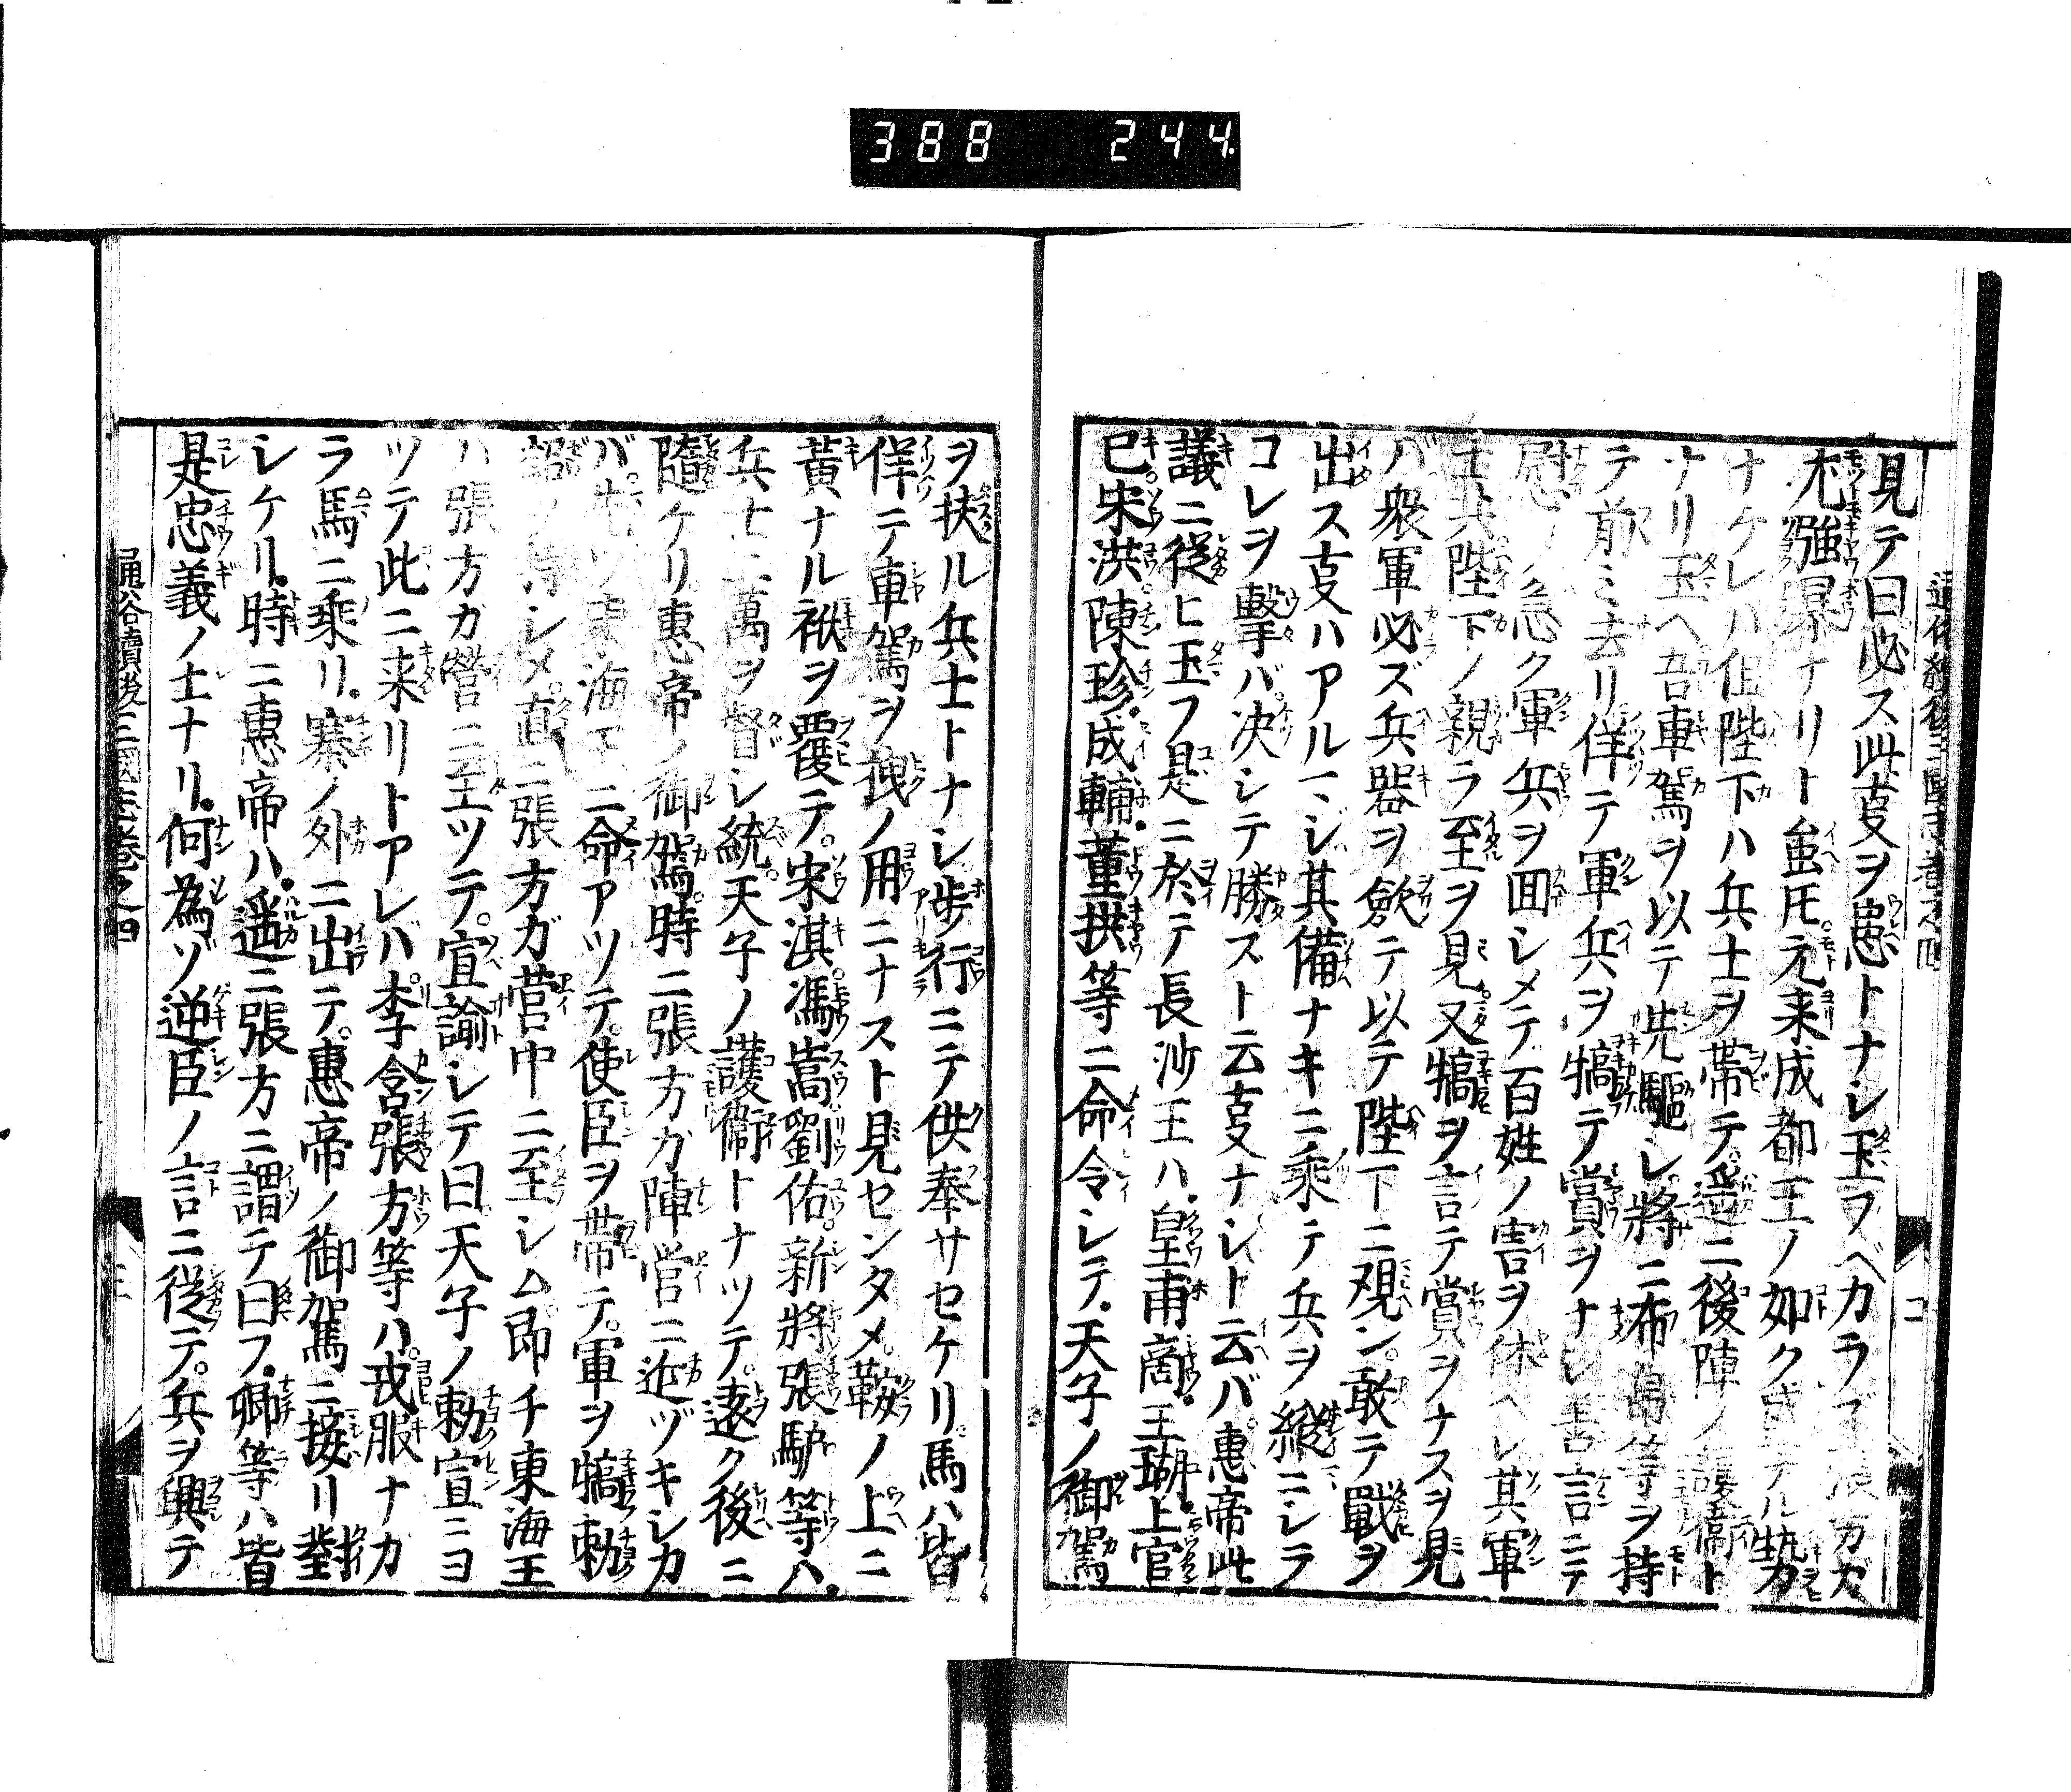 388 244
見テ曰必ス此叓ヲ患トナシ玉フベカラズ張方ガ
尤強暴ナリト虽圧元来成都王ノ如ク
ナケレハ但陛下ハ兵士ヲ帯テ遥ニ後陣ノ護衞ト
ナリ玉ヘ吾車駕ヲ以テ先驅シ將ニ布帛等ヲ持
テ前ミ去リ佯テ軍兵ヲ犒テ賞ヲナシ
急ク軍兵ヲ囬シメテ百姓ノ害ヲ休ヘシ其軍
士共陛下ノ親ラ至ヲ見又犒ヲ言テ賞ヲナスヲ見
バ衆軍必ズ兵器ヲ歛テ以テ陛下ニ覌ン敢テ戰ヲ
出ス叓ハアルマシ其備ナキニ乘テ兵ヲ縱ニシテ
コレヲ擊バ决シテ勝ズト云叓ナシト云バ惠帝此
議ニ從ヒ玉フ是ニ於テ長沙王ハ皇甫商王瑚上官
巳宋洪陳珍成輔董拱等ニ命令シテ天子ノ御駕
ヲ扶ル兵士トナシ步行ニテ供奉サセケリ馬ハ皆
佯テ車駕ヲ拽ノ用ニナスト見センタメ鞍ノ上ニ
黃ナル袱ヲ覆テ宋淇馮嵩劉佑新將張馿等ハ
兵士二萬ヲ督シ統天子ノ護衞トナツテ遠ク後ニ
隨ケリ惠帝ノ御駕時ニ張方ガ陣営ニ近ヅキシカ
バ先ツ東海王ニ命アツテ使臣ヲ帶テ軍ヲ犒勅
詔ヲ持シメ直ニ張方ガ营中ニ至シム即チ東海王
ハ張方カ營ニ至ツテ宣諭シテ曰天子ノ勅宣ニヨ
ツテ此ニ来リトアレバ李含張方等ハ戎服ナカ
ラ馬ニ乘リ寨ノ外ニ出テ惠帝ノ御駕ニ接リ對
シケリ時ニ惠帝ハ遥ニ張方ニ謂テ曰フ卿等ハ皆
是忠義ノ士ナリ何為ゾ逆臣ノ言ニ從テ兵ヲ興テ
通俗續後三國志卷之四